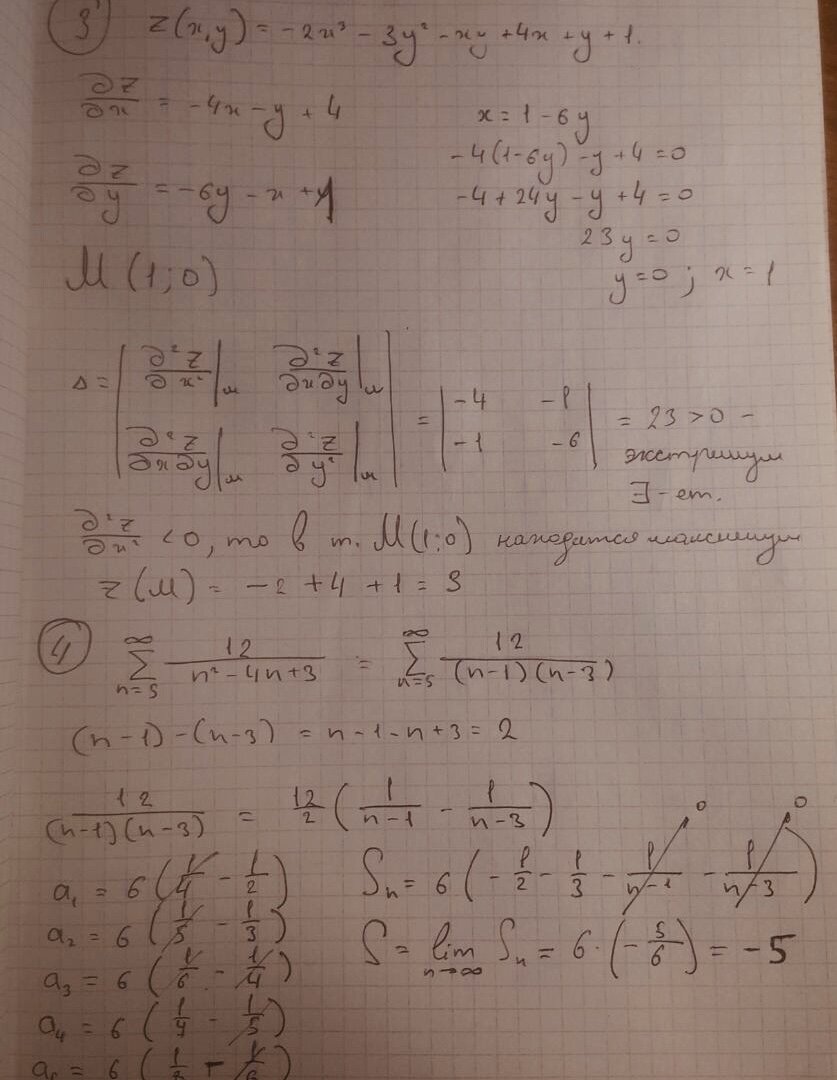 3) z(x,y) = -2x² - 3y² - xy + 4x + y + 1.
∂z/∂x = -4x - y + 4
x = 1 - 6y
-4(1-6y) - y + 4 = 0
∂z/∂y = -6y - x + 1
-4 + 24y - y + 4 = 0
23y = 0
M(1;0)
y = 0; x = 1
Δ = | ∂²z/∂x² |м ∂²z/∂x∂y |м ; ∂²z/∂x∂y |м ∂²z/∂y² |м | = | -4 -1 ; -1 -6 | = 23 > 0 -
экстремум
∃-ет.
∂²z/∂x² < 0, то в т. M(1;0) находится максимум
z(M) = -2 + 4 + 1 = 3
4) ∑ n=5 ∞ 12/(n² - 4n + 3) = ∑ n=5 ∞ 12/((n-1)(n-3))
(n-1) - (n-3) = n - 1 - n + 3 = 2
12/((n-1)(n-3)) = 12/2 (1/(n-1) - 1/(n-3))
a₁ = 6(1/4 - 1/2)
a₂ = 6(1/5 - 1/3)
a₃ = 6(1/6 - 1/4)
a₄ = 6(1/7 - 1/5)
= 6(1/8 - 1/6)
Sn = 6(-1/2 - 1/3 - 1/(n-1) - 1/(n-3)) 0 0
S = lim n→∞ Sn = 6·(-5/6) = -5